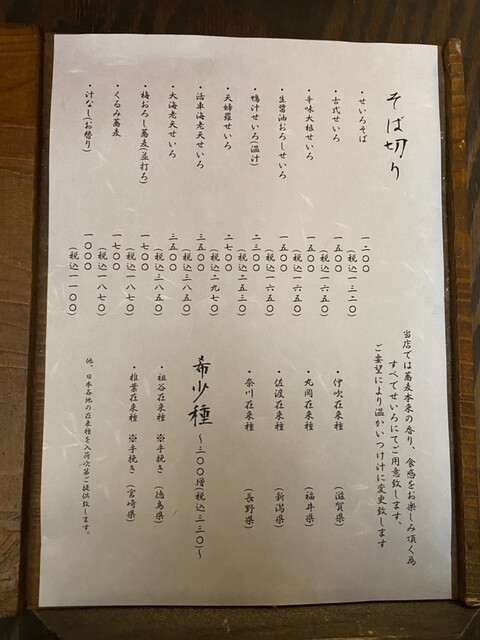 そば切り
・せいろそば
一二〇〇
(税込一三二〇)
・古式せいろ
一五〇〇
(税込一六五〇)
・辛味大根せいろ
一五〇〇
(税込一六五〇)
・生醤油おろしせいろ
一五〇〇
(税込一六五〇)
・鴨汁せいろ(温汁)
二三〇〇
(税込二五三〇)
・天婦羅せいろ
二七〇〇
(税込二九七〇)
・活車海老天せいろ
三五〇〇
(税込三八五〇)
・大海老天せいろ
三五〇〇
(税込三八五〇)
・梅おろし蕎麦(並打ち)
一七〇〇
(税込一八七〇)
・くるみ蕎麦
一七〇〇
(税込一八七〇)
・汁なし(お替り)
一〇〇〇
(税込一一〇〇)
当店では蕎麦本来の香り、食感をお楽しみ頂く為
すべてせいろにてご用意致します、
ご要望により温かいつけ汁に変更致します
・伊吹在来種 (滋賀県)
・丸岡在来種 (福井県)
・佐渡在来種 (新潟県)
・奈川在来種 (長野県)
希少種 ~三〇〇増税込三三〇~
・祖谷在来種 ※手挽き (徳島県)
・椎葉在来種 ※手挽き (宮崎県)
他、日本各地の在来種を入荷次第ご提供致します。